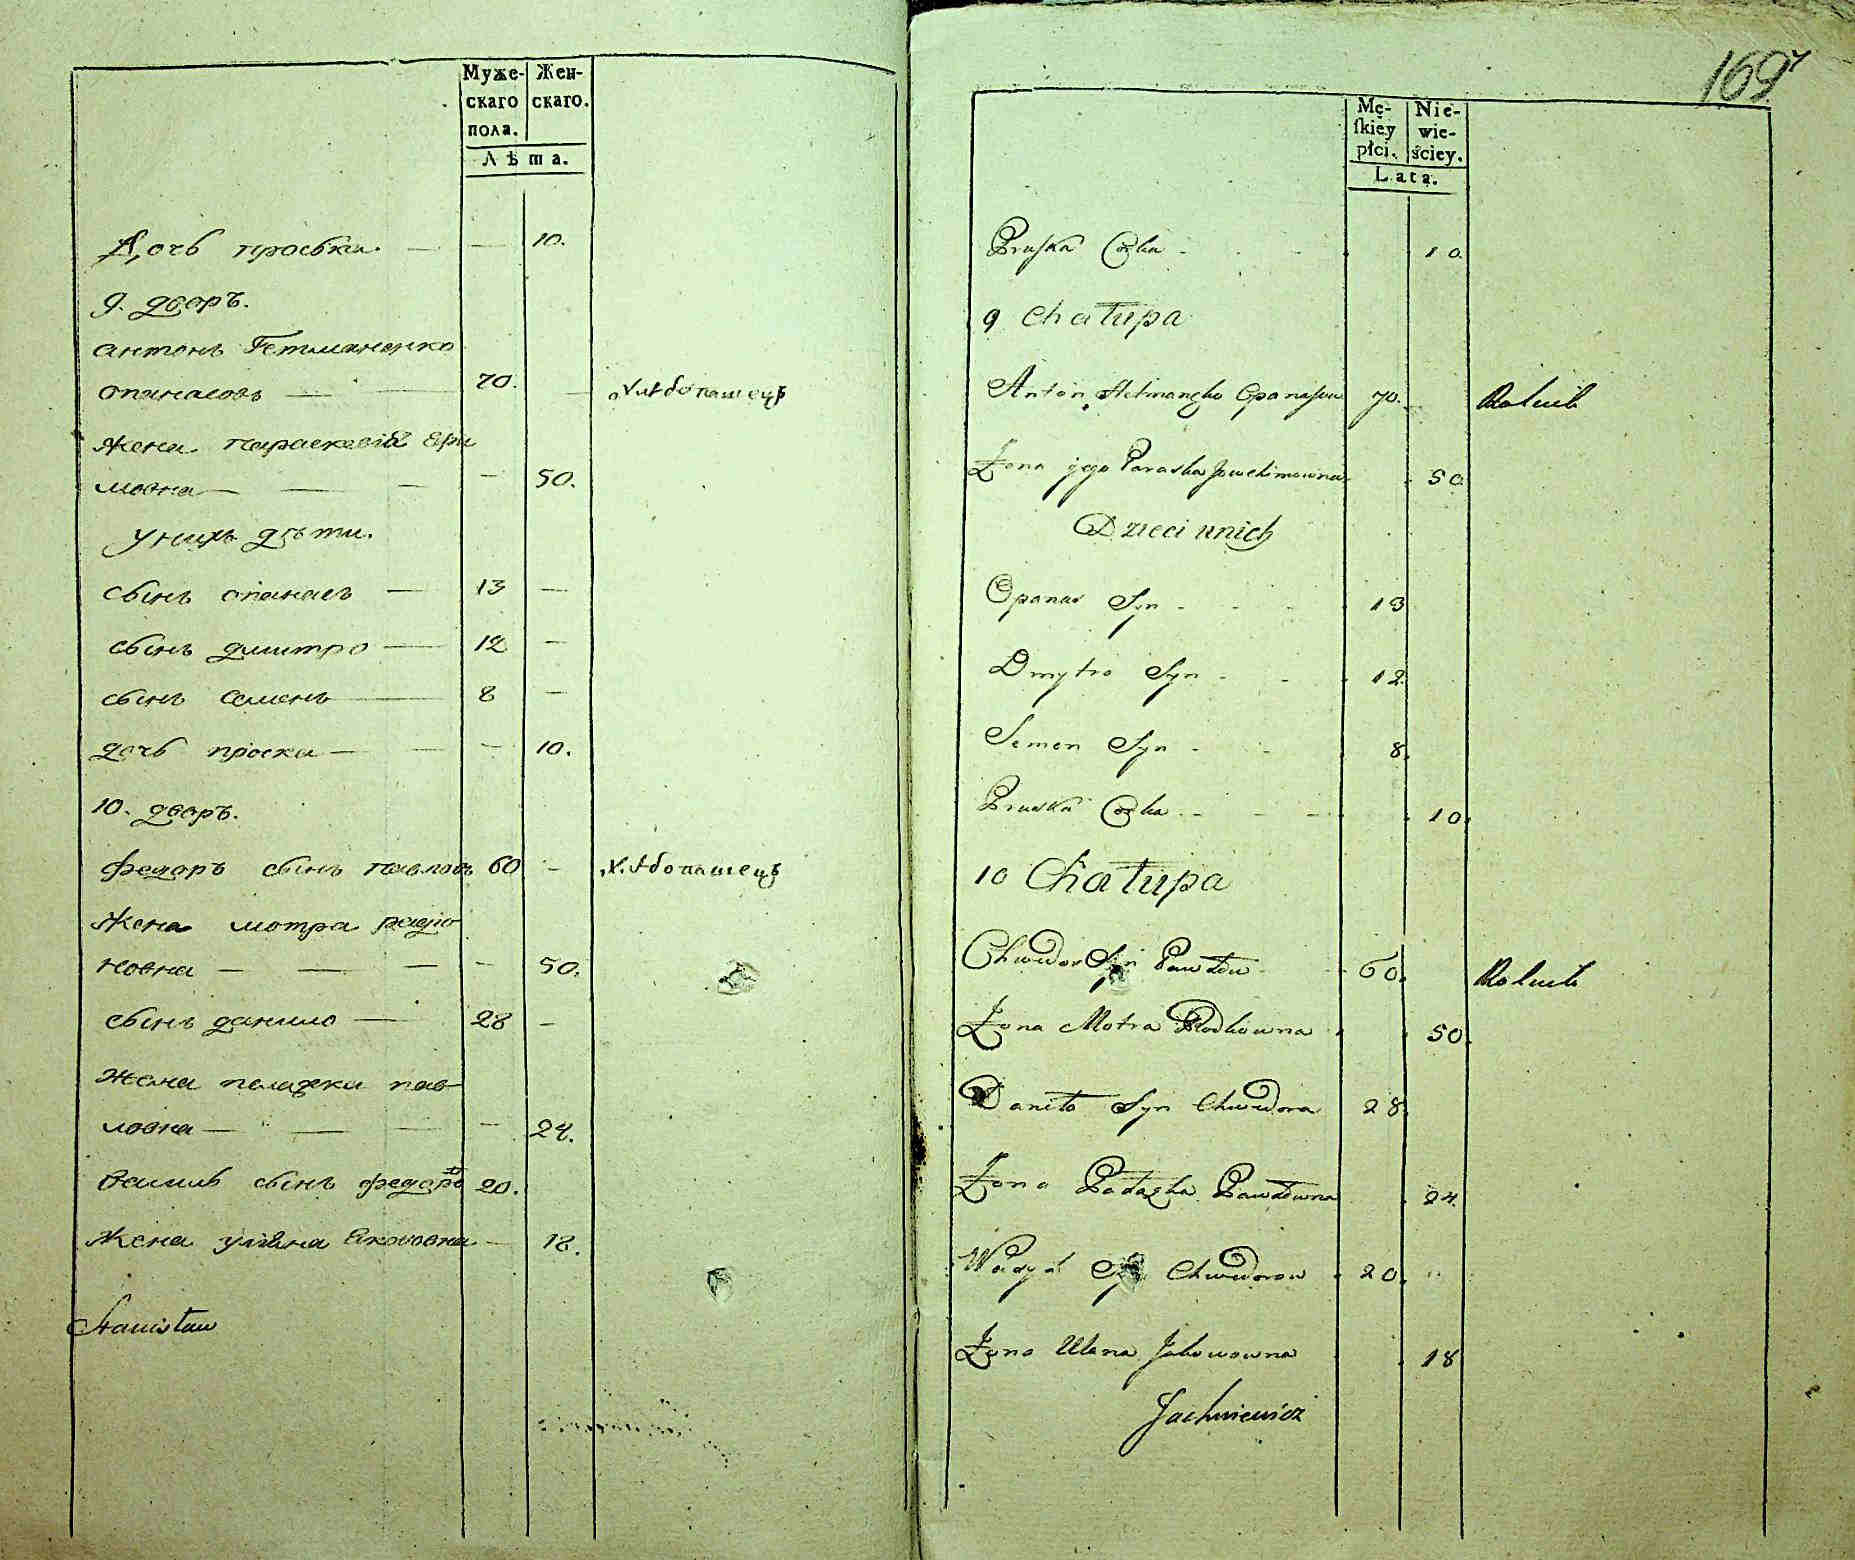 Муже- Жен-
скаго скаго.
пола.
Лѣта.
Дочь проська. — — 10.
9. дворъ.
антонъ Гетманенко
опанасовъ — — 70. — хлѣбопашецъ
жена параскевія Ефи
мовна — — — — 50.
у нихъ дѣти.
сынъ опанасъ — 13 —
сынъ димитро — 12 —
сынъ семенъ — 8 —
дочь проска — — — 10.
10. дворъ.
федоръ сынъ павловъ 60 — хлѣбопашецъ
жена мотра радіо
новна — — — — 50.
сынъ данило — 28 —
жена пелажка пав-
ловна — — — — 24.
василь сынъ федоровъ 20.
жена уляна Якововна — 18.
Stanisław
169
Mę- Nie-
ſkiey wie-
płci. ściey.
Lata.
Pruſka Corka - 10.
9 Chałupa
Anton Hetmanęko Opanaſow 70. Rolnik
Żona jego Paraska Jowchimowna 50
Dzieci unich
Opanas Syn - 13
Dmytro Syn - 12.
Semen Syn - 8.
Pruska Corka - 10.
10 Chałupa
Chwedor Syn Pawłow 60. Rolnik
Żona Motra Rodkowna 50.
Daniło Syn Chwedora 28.
Żona Pałażka Pawłowna 24.
Wasyl Syn Chwedorow 20.
Żona Ulana Jakowowna 18
Jachniewicz